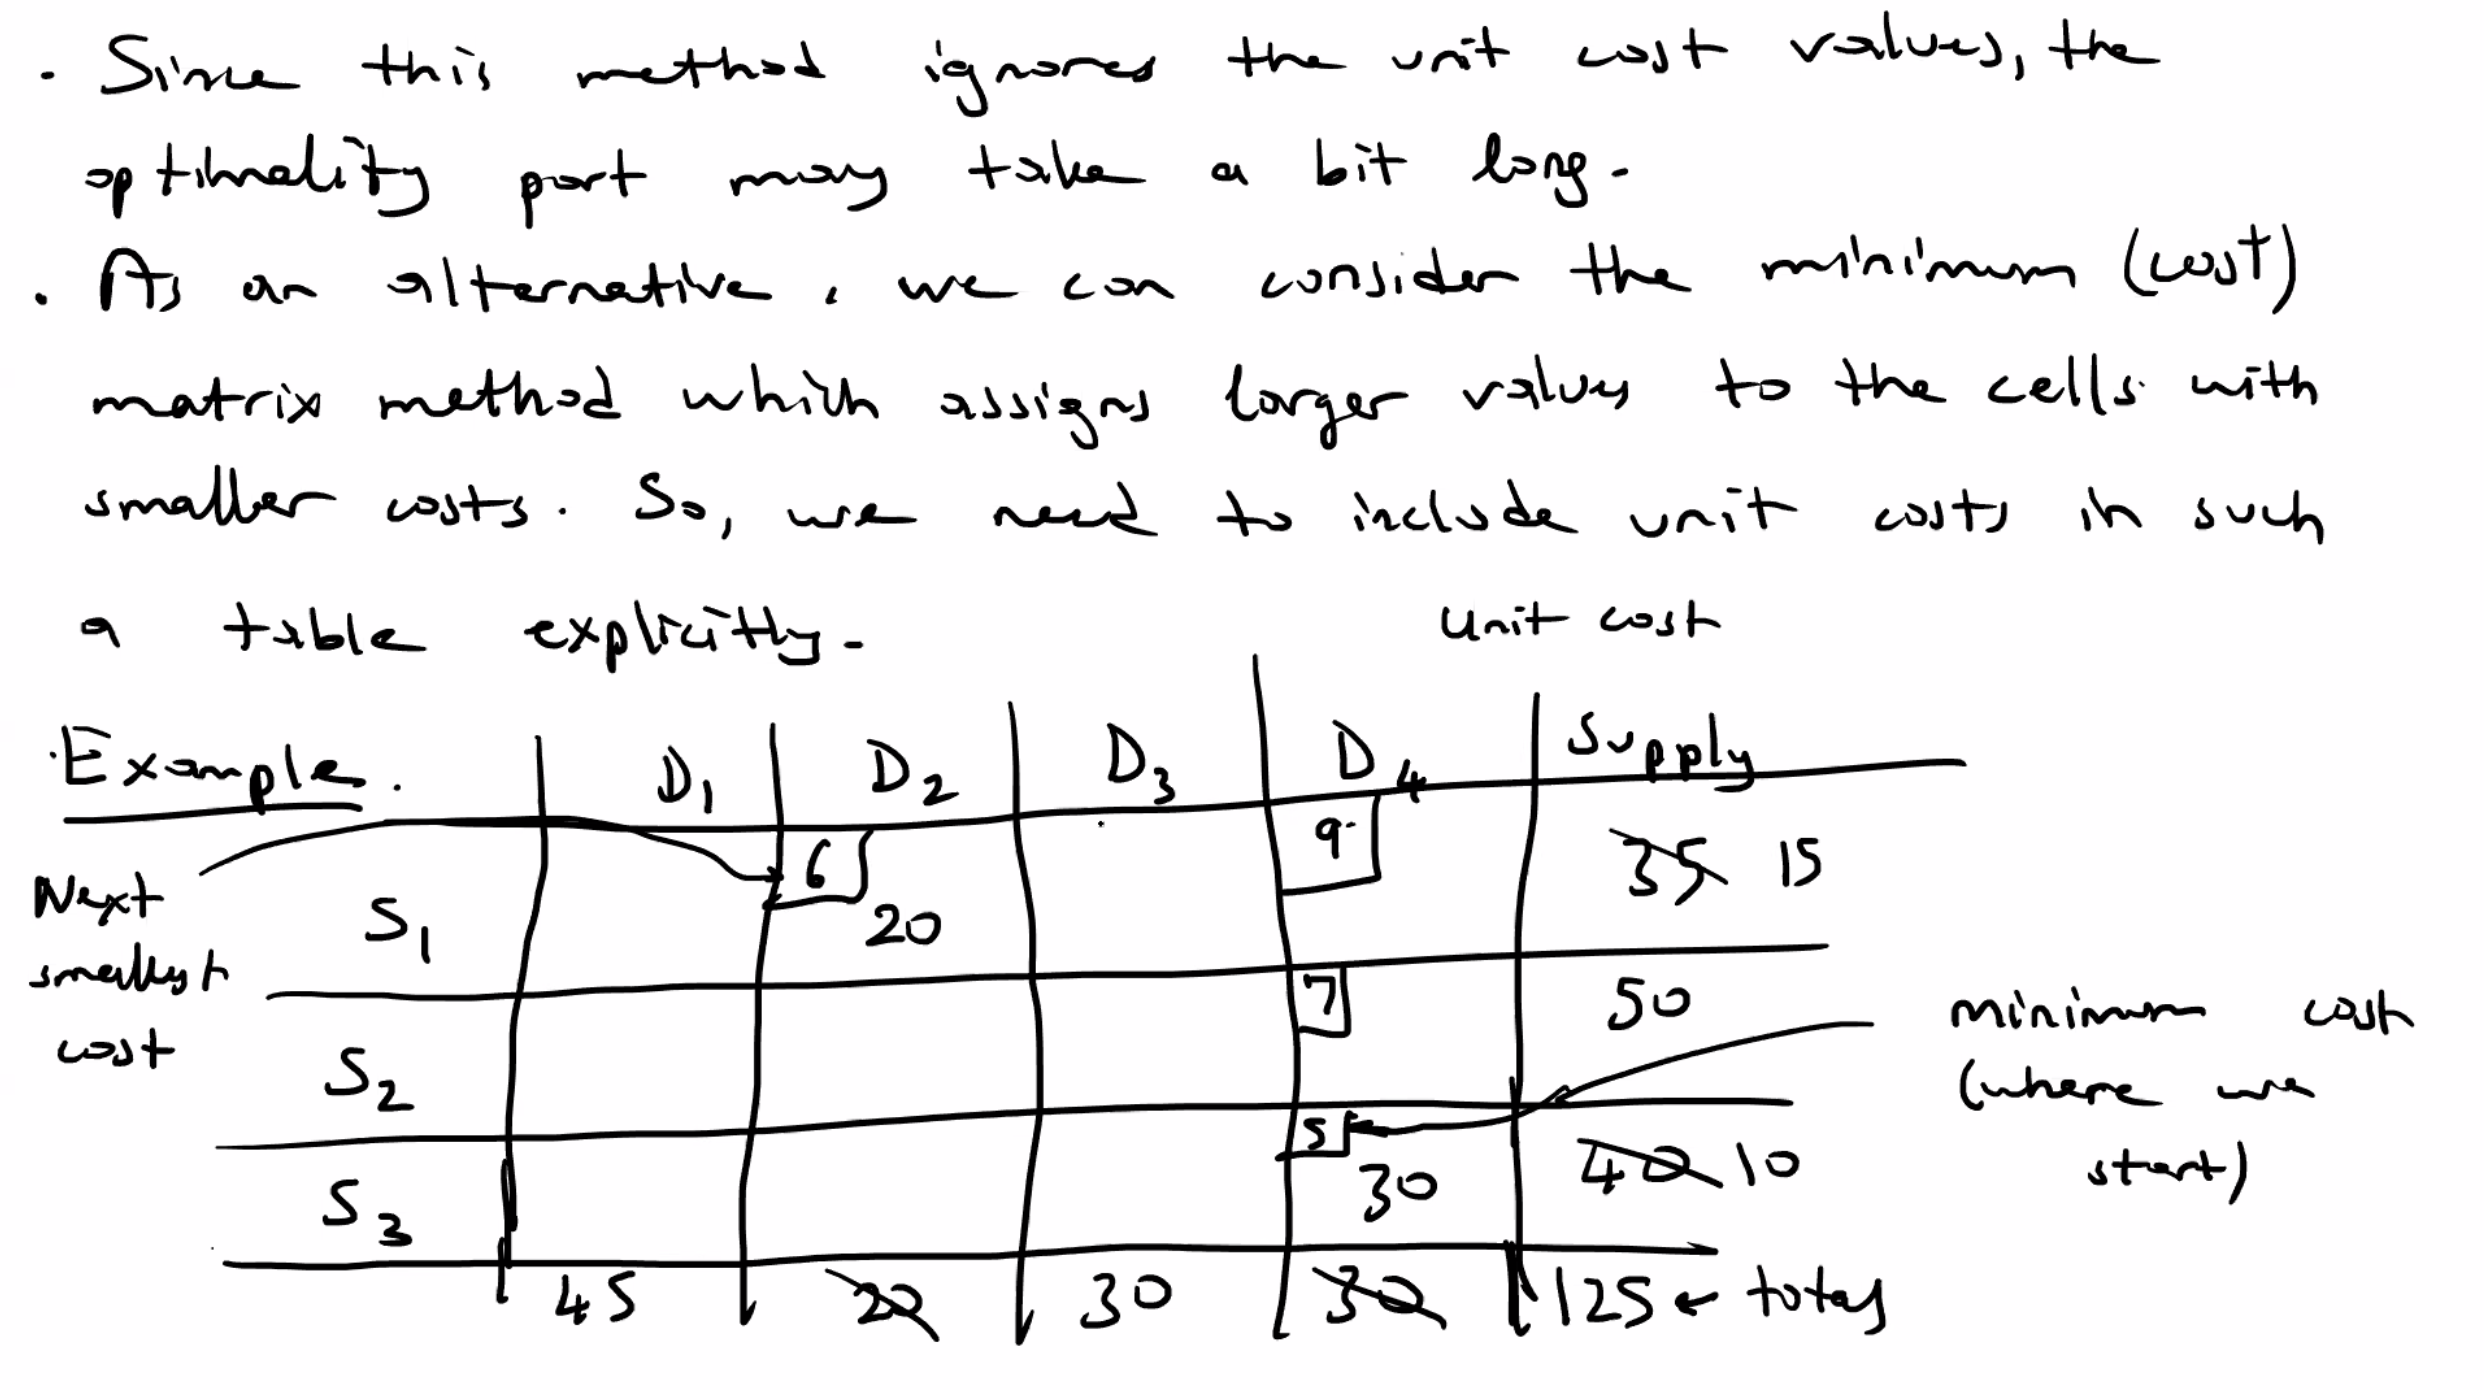 . Since this method ignores the unit cost values, the
optimality part may take a bit long.
. As an alternative, we can consider the minimum (cost)
matrix method which assigns larger values to the cells with
smaller costs. So, we need to include unit costs in such
a table explicitly.
unit cost
. Example. D1 D2 D3 D4 Supply
6 9
Next S1 20 35 15
smallest
cost
7 50
S2
minimum cost
(where we
start)
5
S3 30 40 10
45 20 30 30 125 ← total